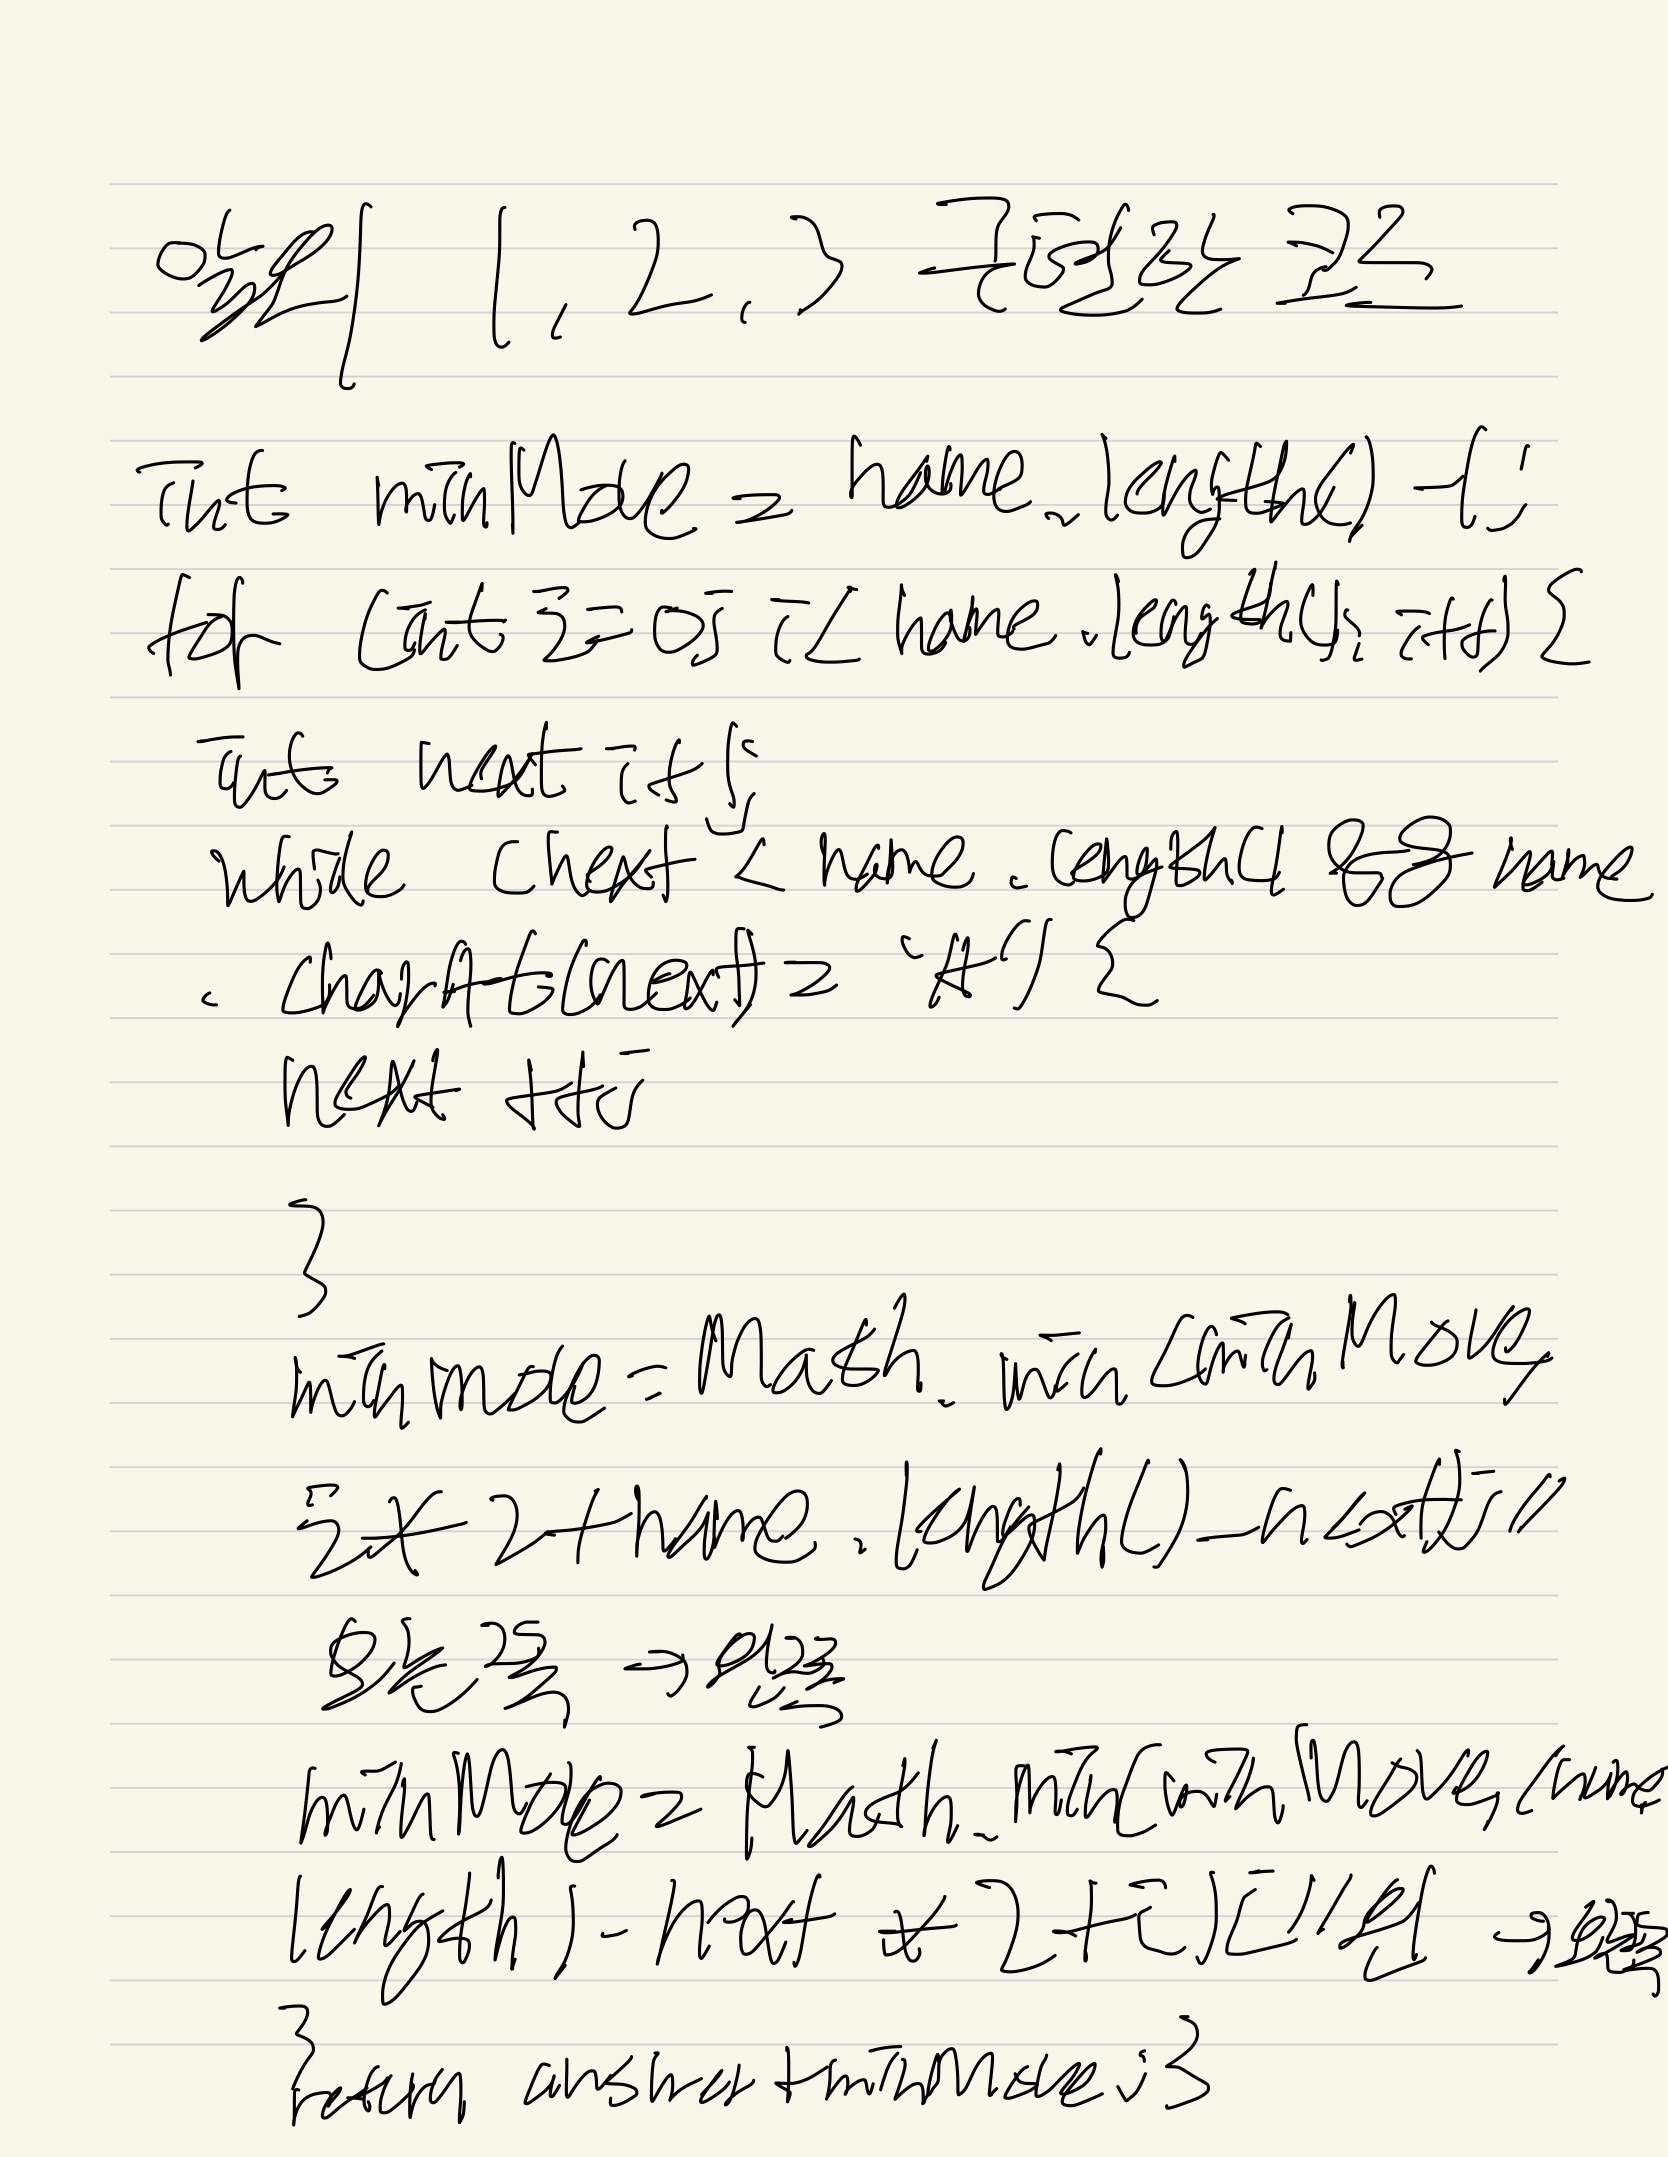 위의 1, 2, 3 구현한 코드
int minMove = name.length() -1;
for (int i=0; i< name.length(); i++) {
int next i+1;
while (next < name.length() && name
.charAt(next) = 'A') {
next ++;
}
minmove = Math.min(minMove,
i*2+name.length()-next); //
오른쪽 → 왼쪽
minMove = Math.min(minMove, (name
length)-next *2+i); // →
}return answer+minMove;}